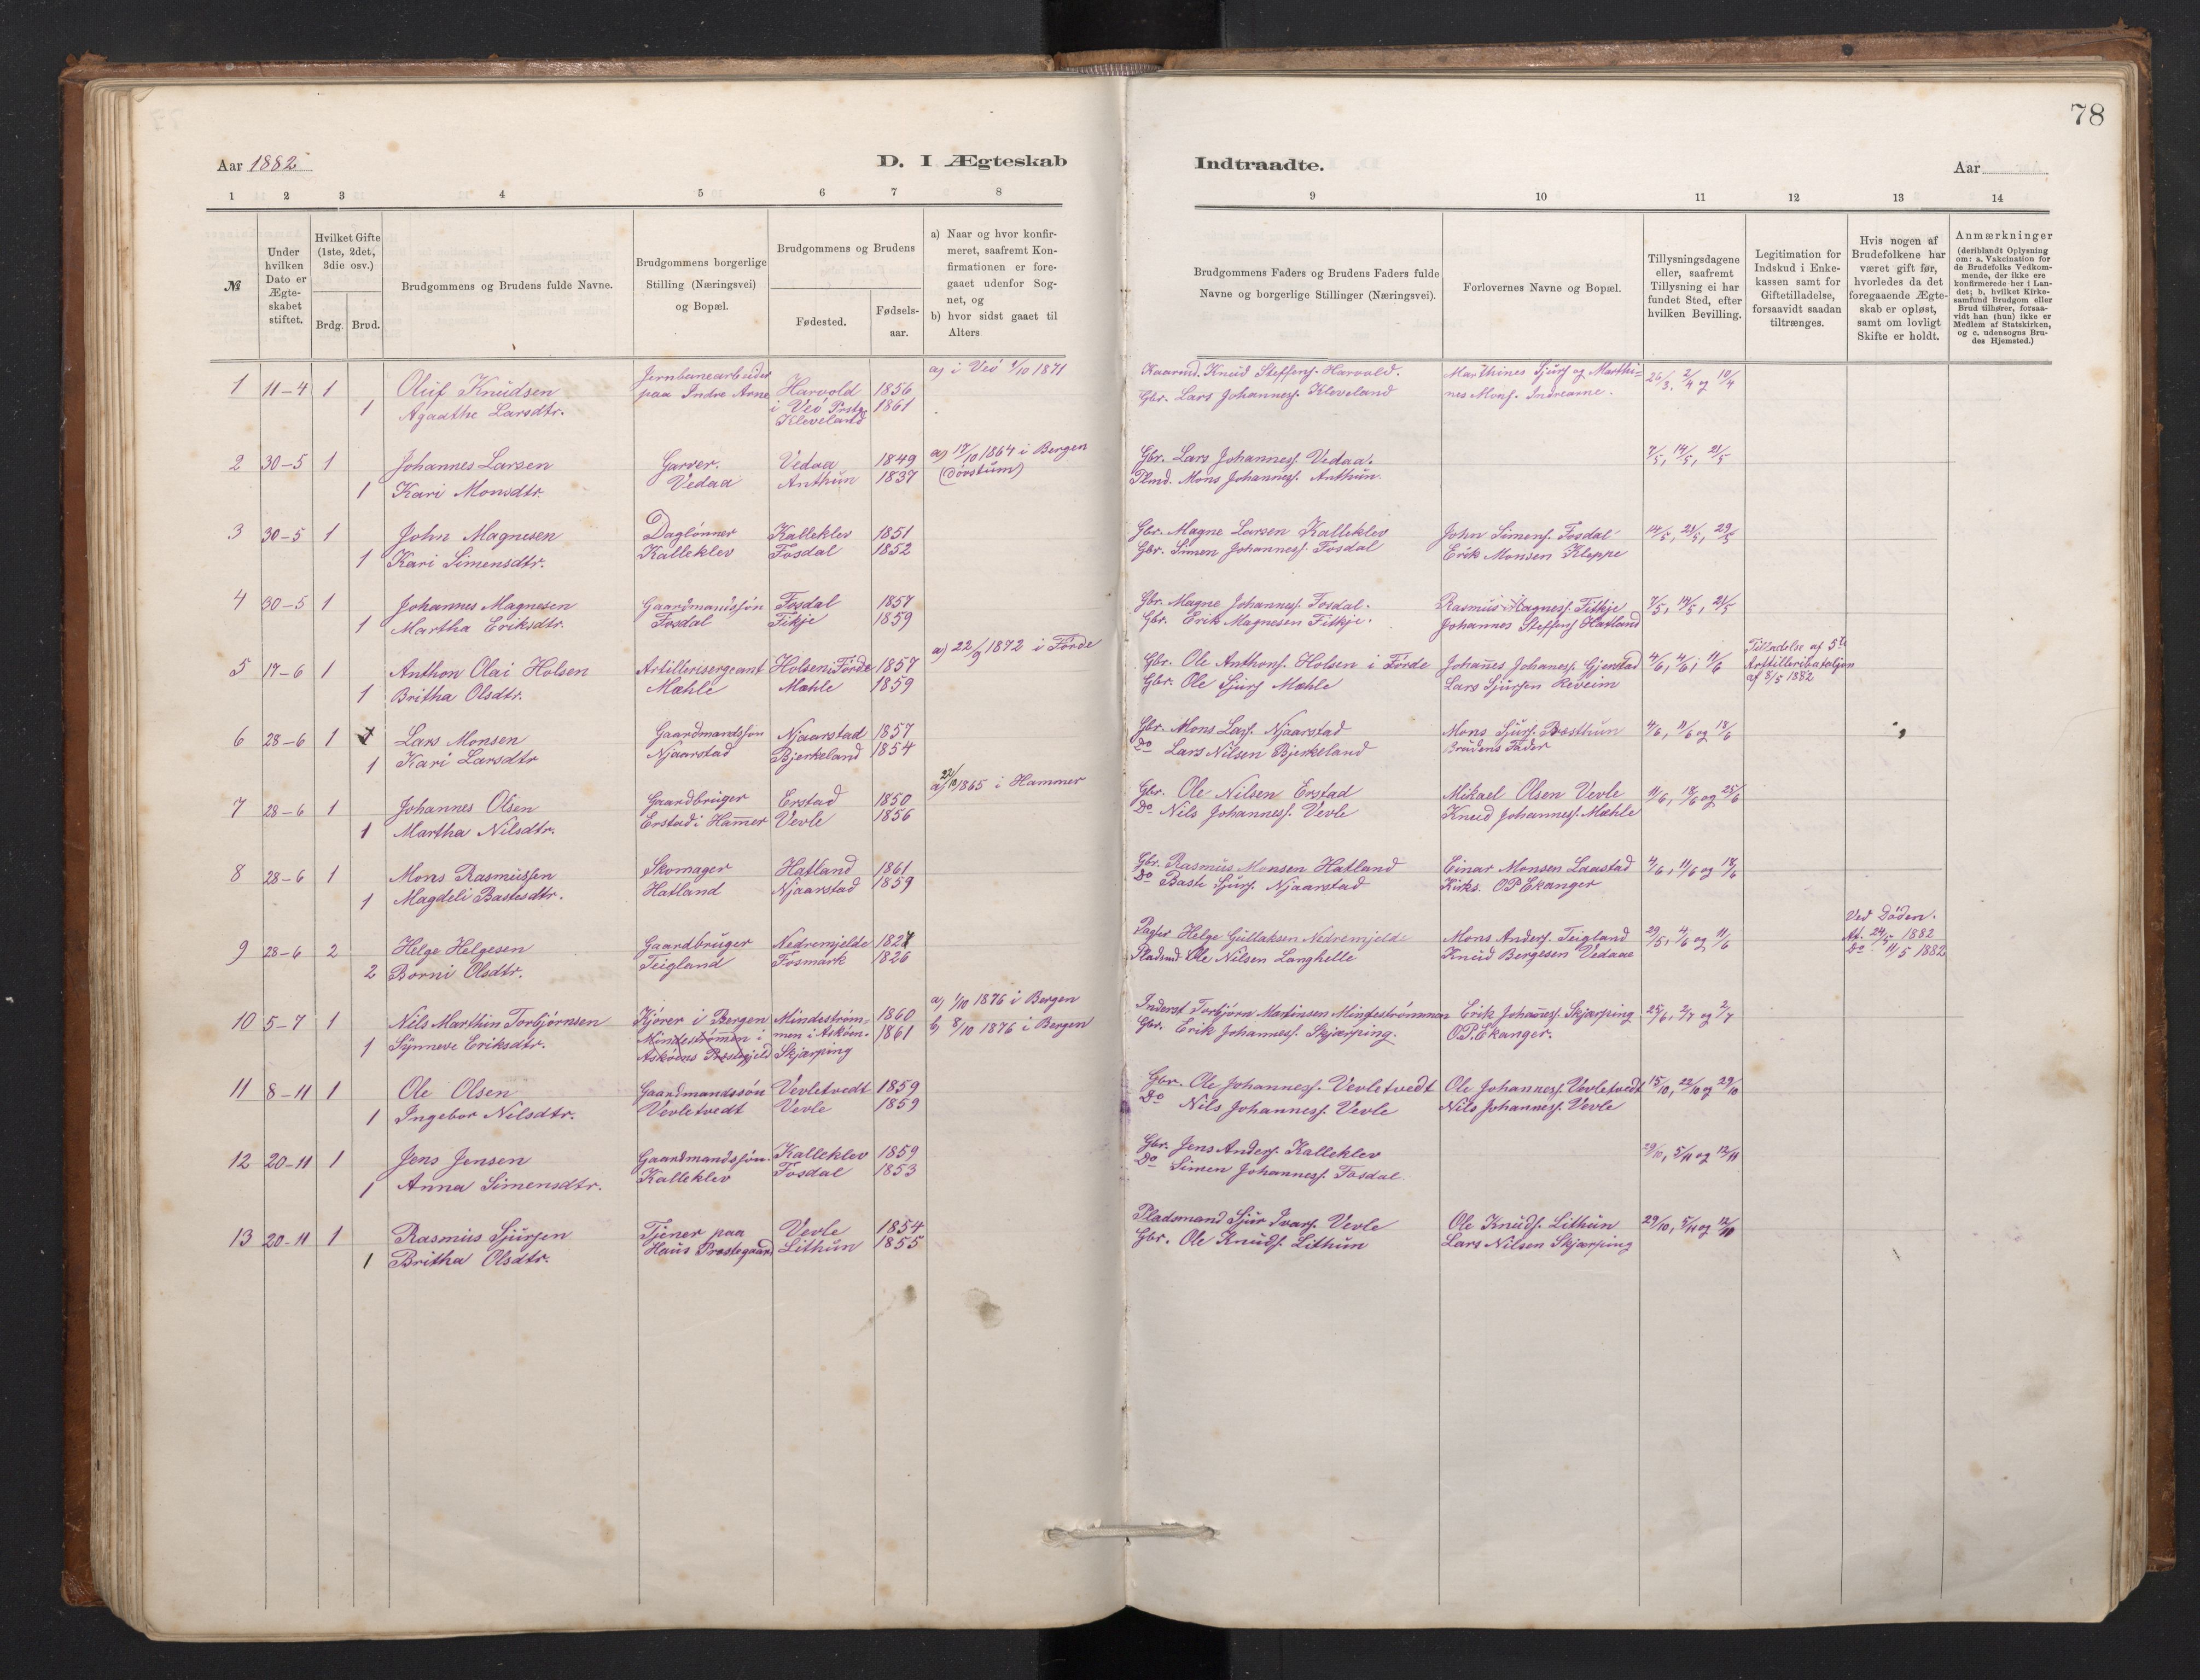 78
Aar 1882
D. I Ægteskab
Indtraadte.
Aar
1 2 3 4 5 6 7 8 9 10 11 12 13 14
№
Under hvilken Dato er Ægteskabet stiftet.
Hvilket Gifte (1ste, 2det, 3die osv.)
Brdg. Brud.
Brudgommens og Brudens fulde Navne.
Brudgommens borgerlige Stilling (Næringsvei) og Bopæl.
Brudgommens og Brudens
Fødested.
Fødselsaar.
a) Naar og hvor konfirmeret, saafremt Konfirmationen er foregaaet udenfor Sognet, og
b) hvor sidst gaaet til Alters
Brudgommens Faders og Brudens Faders fulde Navne og borgerlige Stillinger (Næringsvei).
Forlovernes Navne og Bopæl.
Tillysningsdagene eller, saafremt Tillysning ei har fundet Sted, efter hvilken Bevilling.
Legitimation for Indskud i Enkekassen samt for Giftetilladelse, forsaavidt saadan tiltrænges.
Hvis nogen af Brudefolkene har været gift før, hvorledes da det foregaaende Ægteskab er opløst, samt om lovligt Skifte er holdt.
Anmærkninger
(deriblandt Oplysning om: a. Vakcination for de Brudefolks Vedkommende, der ikke ere konfirmerede her i Landet; b, hvilket Kirkesamfund Brudgom eller Brud tilhører, forsaavidt han (hun) ikke er Medlem af Statskirken, og c. udensogns Brudes Hjemsted.)
1 11-4 1 Oluf Knudsen Jernbanearbeider Harvold 1856 a) i Veö 1/10 1871 Kaarmd. Knud Steffens. Harvold. Marthines Sjurs. og Marthi- 26/3, 2/4 og 10/4
1 Agaathe Larsdtr. paa Indre Arne i Veö Prstg. Kleveland 1861 Gbr. Lars Johanness. Kleveland nes Mons. Indrearne.
2 30-5 1 Johannes Larsen Garver. Vedaa 1849 a) 17/10 1864 i Bergen Gbr. Lars Johanness. Vedaa. 7/5, 14/5, 21/5
1 Kari Monsdtr. Vedaa Anthun 1837 Plmd. Mons Johanness. Anthun.
3 30-5 1 John Magnesen Daglönner Kalleklev 1851 Gbr. Magne Larsen Kalleklev John Simens. Fosdal 14/5, 21/5, 29/5
1 Kari Simensdtr. Kalleklev Fosdal 1852 Gbr. Simen Johanness. Fosdal Erik Monsen Kleppe
4 30-5 1 Johannes Magnesen Gaardmandssön Fosdal 1857 Gbr. Magne Johanness. Fosdal. Rasmus Magness. Fitkje 7/5, 14/5, 21/5
1 Martha Eriksdtr. Fosdal Fitkje 1859 Gbr. Erik Magnesen Fitkje. Johannes Steffens. Hatland
5 17-6 1 Anthon Olai Holsen Artillerisergeant Holsen i Förde 1857 a) 22/9 1872 i Förde Gbr. Ole Anthons. Holsen i Förde Johannes Johaness. Gjerstad 4/6, 4/6, 11/6 Tilladelse af 5te Artilleribataljon af 8/5 1882
1 Britha Olsdtr. Mæhle Mæhle 1859 Gbr. Ole Sjurs. Mæhle Lars Sjursen Reveim
6 28-6 1 Lars Monsen Gaardmandssön Njaarstad 1857 Gbr. Mons Lars. Njaarstad Mons Sjurs. Bæsthun 4/6, 11/6 og 18/6
1 Kari Larsdtr Njaarstad Bjerkeland 1854 Do Lars Nilsen Bjerkeland Brudens Fader
7 28-6 1 Johannes Olsen Gaardbruger Erstad 1850 a) 22/10 1865 i Hammer Gbr. Ole Nilsen Erstad Mikael Olsen Vevle 11/6, 18/6 og 25/6
1 Martha Nilsdtr. Erstad i Hammer Vevle 1856 Do Nils Johanness. Vevle Knud Johanness. Mæhle
8 28-6 1 Mons Rasmussen Skomager Hatland 1861 Gbr. Rasmus Monsen Hatland Einar Monsen Laastad 4/6, 11/6 og 18/6
1 Magdeli Bastesdtr. Hatland Njaarstad 1859 Do Baste Sjurs. Njaarstad Kirks. O P Ekanger
9 28-6 2 Helge Helgesen Gaardbruger Nedremjelde 1821 Helge Gullaksen Nedremjelde Mons Anders. Teigland 29/5, 4/6 og 11/6 Ved Döden. Af. 24/5 1882
2 Borni Olsdtr. Teigland Fosmark 1826 Pladsmd Ole Nilsen Langhelle Knud Bergesen Vedaae Do 11/5 1882
10 5-7 1 Nils Marthin Torbjörnsen Kjörer i Bergen Mindeström- 1860 a) 1/10 1876 i Bergen Inderst Torbjörn Martinsen Mindeströmmen Erik Johaness. Skjærping 25/6, 2/7 og 2/7
1 Synneve Eriksdtr. Mindeströmen i Asköens Præstegjeld men i Asköen. Skjærping 1861 b) 8/10 1876 i Bergen Gbr. Erik Johanness. Skjærping. O P. Ekanger.
11 8-11 1 Ole Olsen Gaardmandssön Vevletvedt 1859 Gbr. Ole Johanness. Vevletvedt Ole Johanness. Vevletvedt 15/10, 22/10 og 29/10
1 Ingebor Nilsdtr. Vevletvedt Vevle 1859 Do Nils Johanness. Vevle Nils Johanness. Vevle
12 20-11 1 Jens Jensen Gaardmandssön Kalleklev 1859 Gbr. Jens Anders. Kalleklev 29/10, 5/11 og 12/11
1 Anna Simensdtr. Kalleklev Fosdal 1853 Do Simen Johanness. Fosdal.
13 20-11 1 Rasmus Sjursen Tjener paa Vevle 1854 Pladsmand Sjur Ivars. Vevle Ole Knuds. Lithun 29/10, 5/11 og 12/11
1 Britha Olsdtr. Haus Præstegaard Lithun 1855 Gbr. Ole Knuds. Lithun Lars Nilsen Skjærping